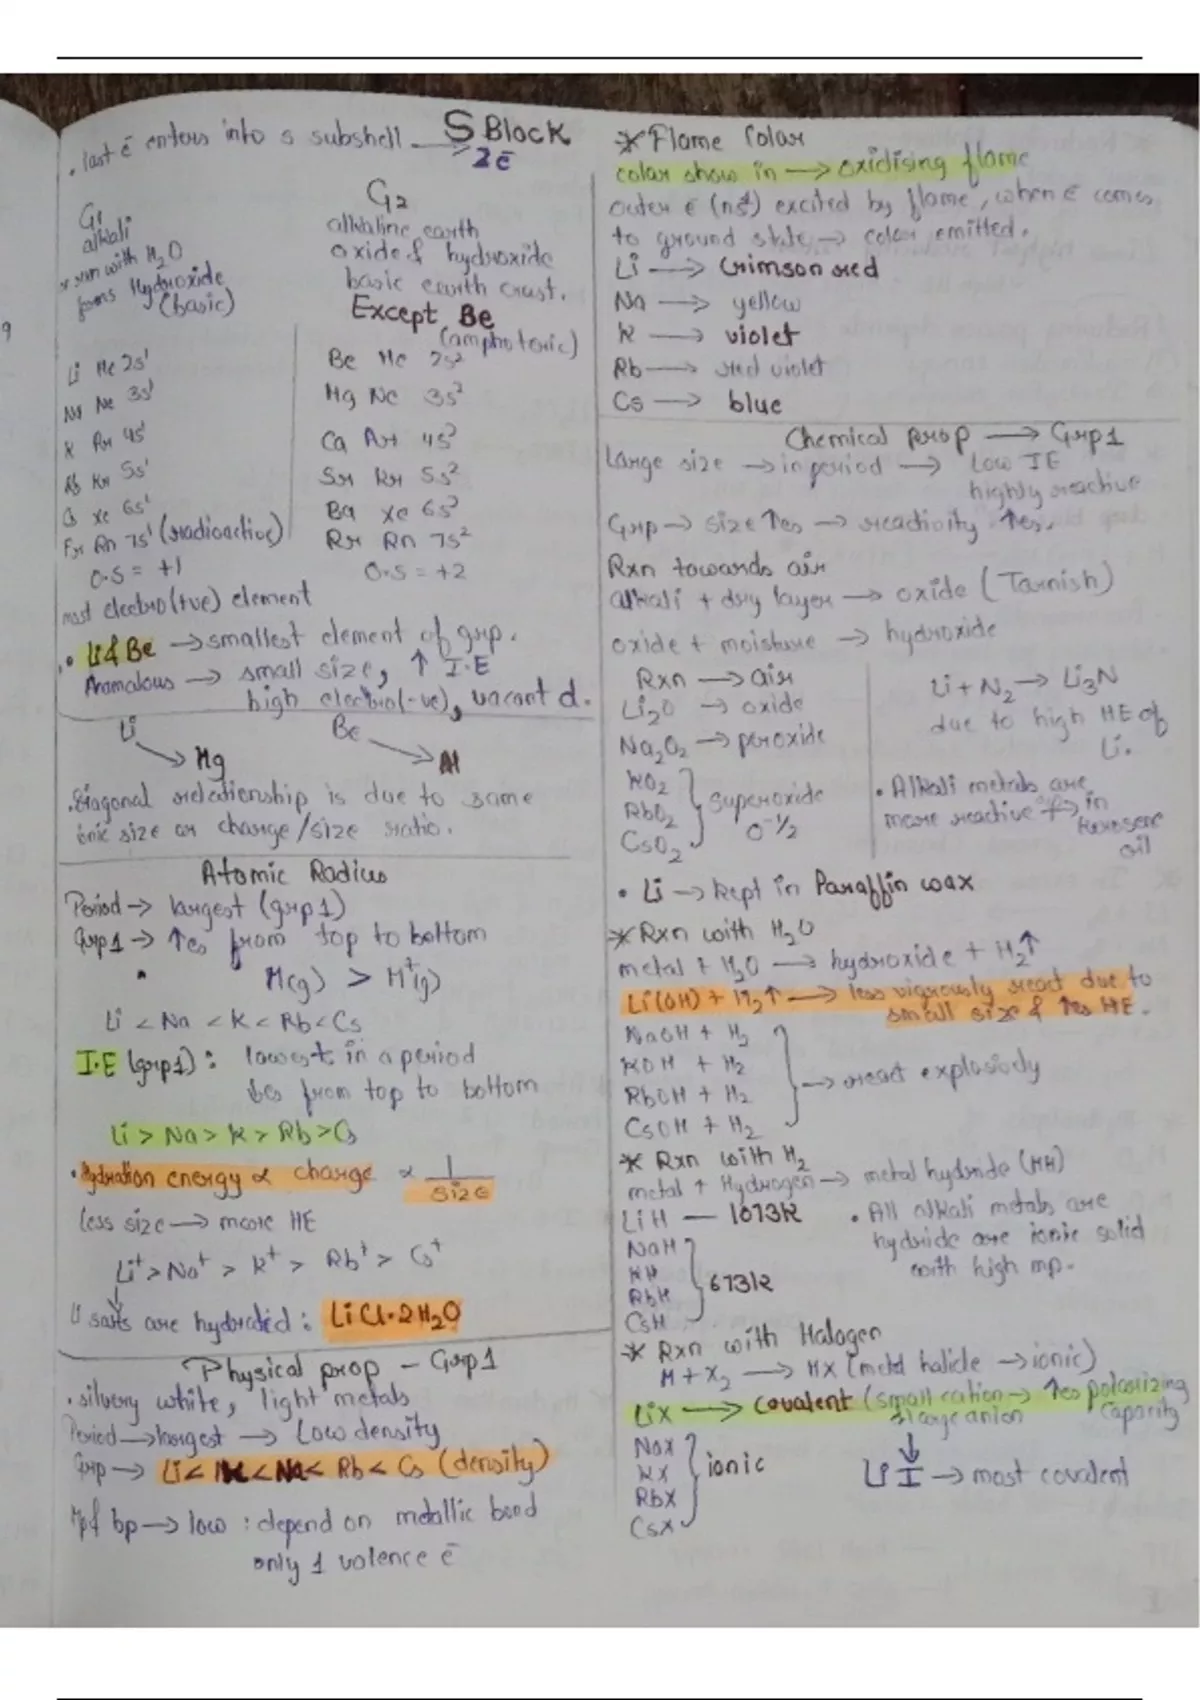 . last ē enters into s subshell → 2ē
S Block
G1
alkali
* rxn with H2O
forms Hydroxide
(basic)
G2
alkaline earth
oxide & hydroxide
basic earth crust.
Except Be
(amphoteric)
Li He 2s1
Na Ne 3s1
K Ar 4s1
Rb Kr 5s1
Cs Xe 6s1
Fr Rn 7s1 (radioactive)
O.S = +1
Be He 2s2
Mg Ne 3s2
Ca Ar 4s2
Sr Kr 5s2
Ba Xe 6s2
Rr Rn 7s2
O.S = +2
most electro(+ve) element
. Li & Be → smallest element of grp.
Anamalous → small size, ↑ I.E
high electro(-ve), vacant d.
Li → Mg
Be → Al
. Diagonal relationship is due to same
ionic size or charge/size ratio.
Atomic Radius
Period → largest (grp1)
Grp1 → ↑es from top to bottom
. M(g) > M+(g)
Li < Na < K < Rb < Cs
I.E (grp1) : lowest in a period
↓es from top to bottom
Li > Na > K > Rb > Cs
. Hydration energy ∝ charge ∝ 1/size
less size → more HE
Li+ > Na+ > K+ > Rb+ > Cs+
Li salts are hydrated : LiCl.2H2O
Physical prop - Grp1
. silvery white, light metals
Period → largest → Low density
Grp → Li < K < Na < Rb < Cs (density)
Mp & bp → low : depend on metallic bond
only 1 valence ē
* Flame Color
color show in → oxidising flame
outer ē (ns1) excited by flame, when ē comes
to ground state → color emitted.
Li → Crimson red
Na → yellow
K → violet
Rb → red violet
Cs → blue
Chemical prop → Grp1
Large size → in period → Low IE
highly reactive
Grp → size ↑es → reactivity ↑es.
Rxn towards air
alkali + dry layer → oxide (Tarnish)
oxide + moisture → hydroxide
Rxn → air
Li2O → oxide
Na2O2 → peroxide
KO2
RbO2
CsO2
superoxide
O-1/2
Li + N2 → Li3N
due to high HE of
Li.
. Alkali metals are
more reactive → in
kerosene
oil
. Li → kept in Paraffin wax
* Rxn with H2O
metal + H2O → hydroxide + H2↑
Li(OH) + H2↑ → less vigrously react due to
small size & ↑es HE.
NaOH + H2
KOH + H2
RbOH + H2
CsOH + H2
→ react explosively
* Rxn with H2
metal + Hydrogen → metal hydride (MH)
LiH — 1073K
NaH
KH
RbH
CsH
673K
. All alkali metals are
hydride are ionic solid
with high mp.
* Rxn with Halogen
M + X2 → MX (metal halide → ionic)
LiX → covalent (small cation → ↑es polarizing
& large anion capacity
NaX
KX
RbX
CsX
ionic
LiI → most covalent